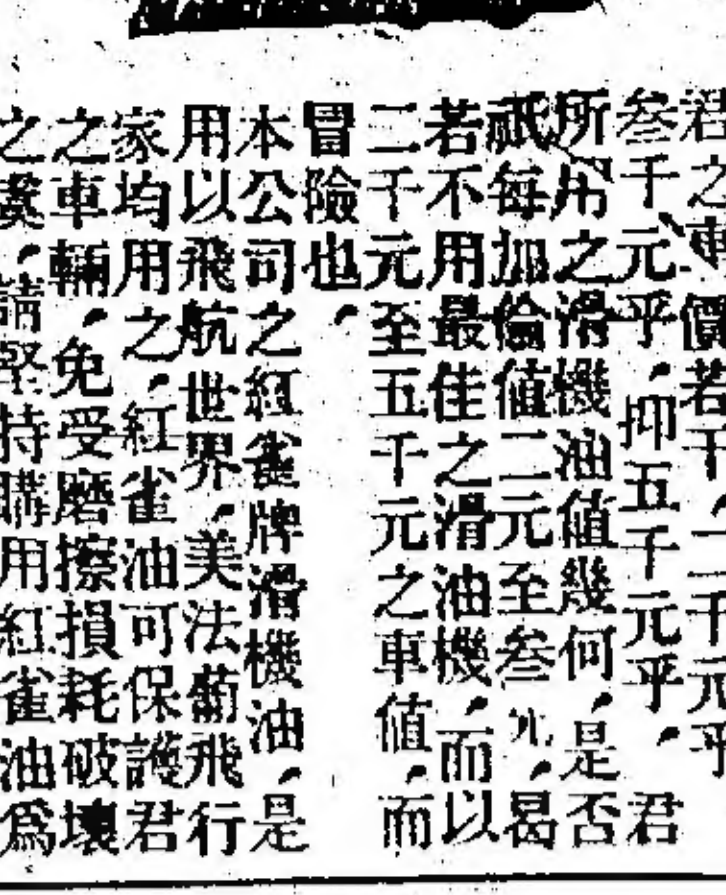 君之車價若干、二千元乎、
叁千元乎、抑五千元乎、君
所用之滑機油値幾何、是否
祇每加倫値二元至叁元、曷
若不用最佳之滑油機、而以
二千元至五千元之車値、而
冒險也、
本公司之紅雀牌滑機油、是
用以飛航世界、美法葡飛行
家均用之、紅雀油可保護君
之車輛、免受磨擦損耗破壞
之虞、請堅持購用紅雀油爲